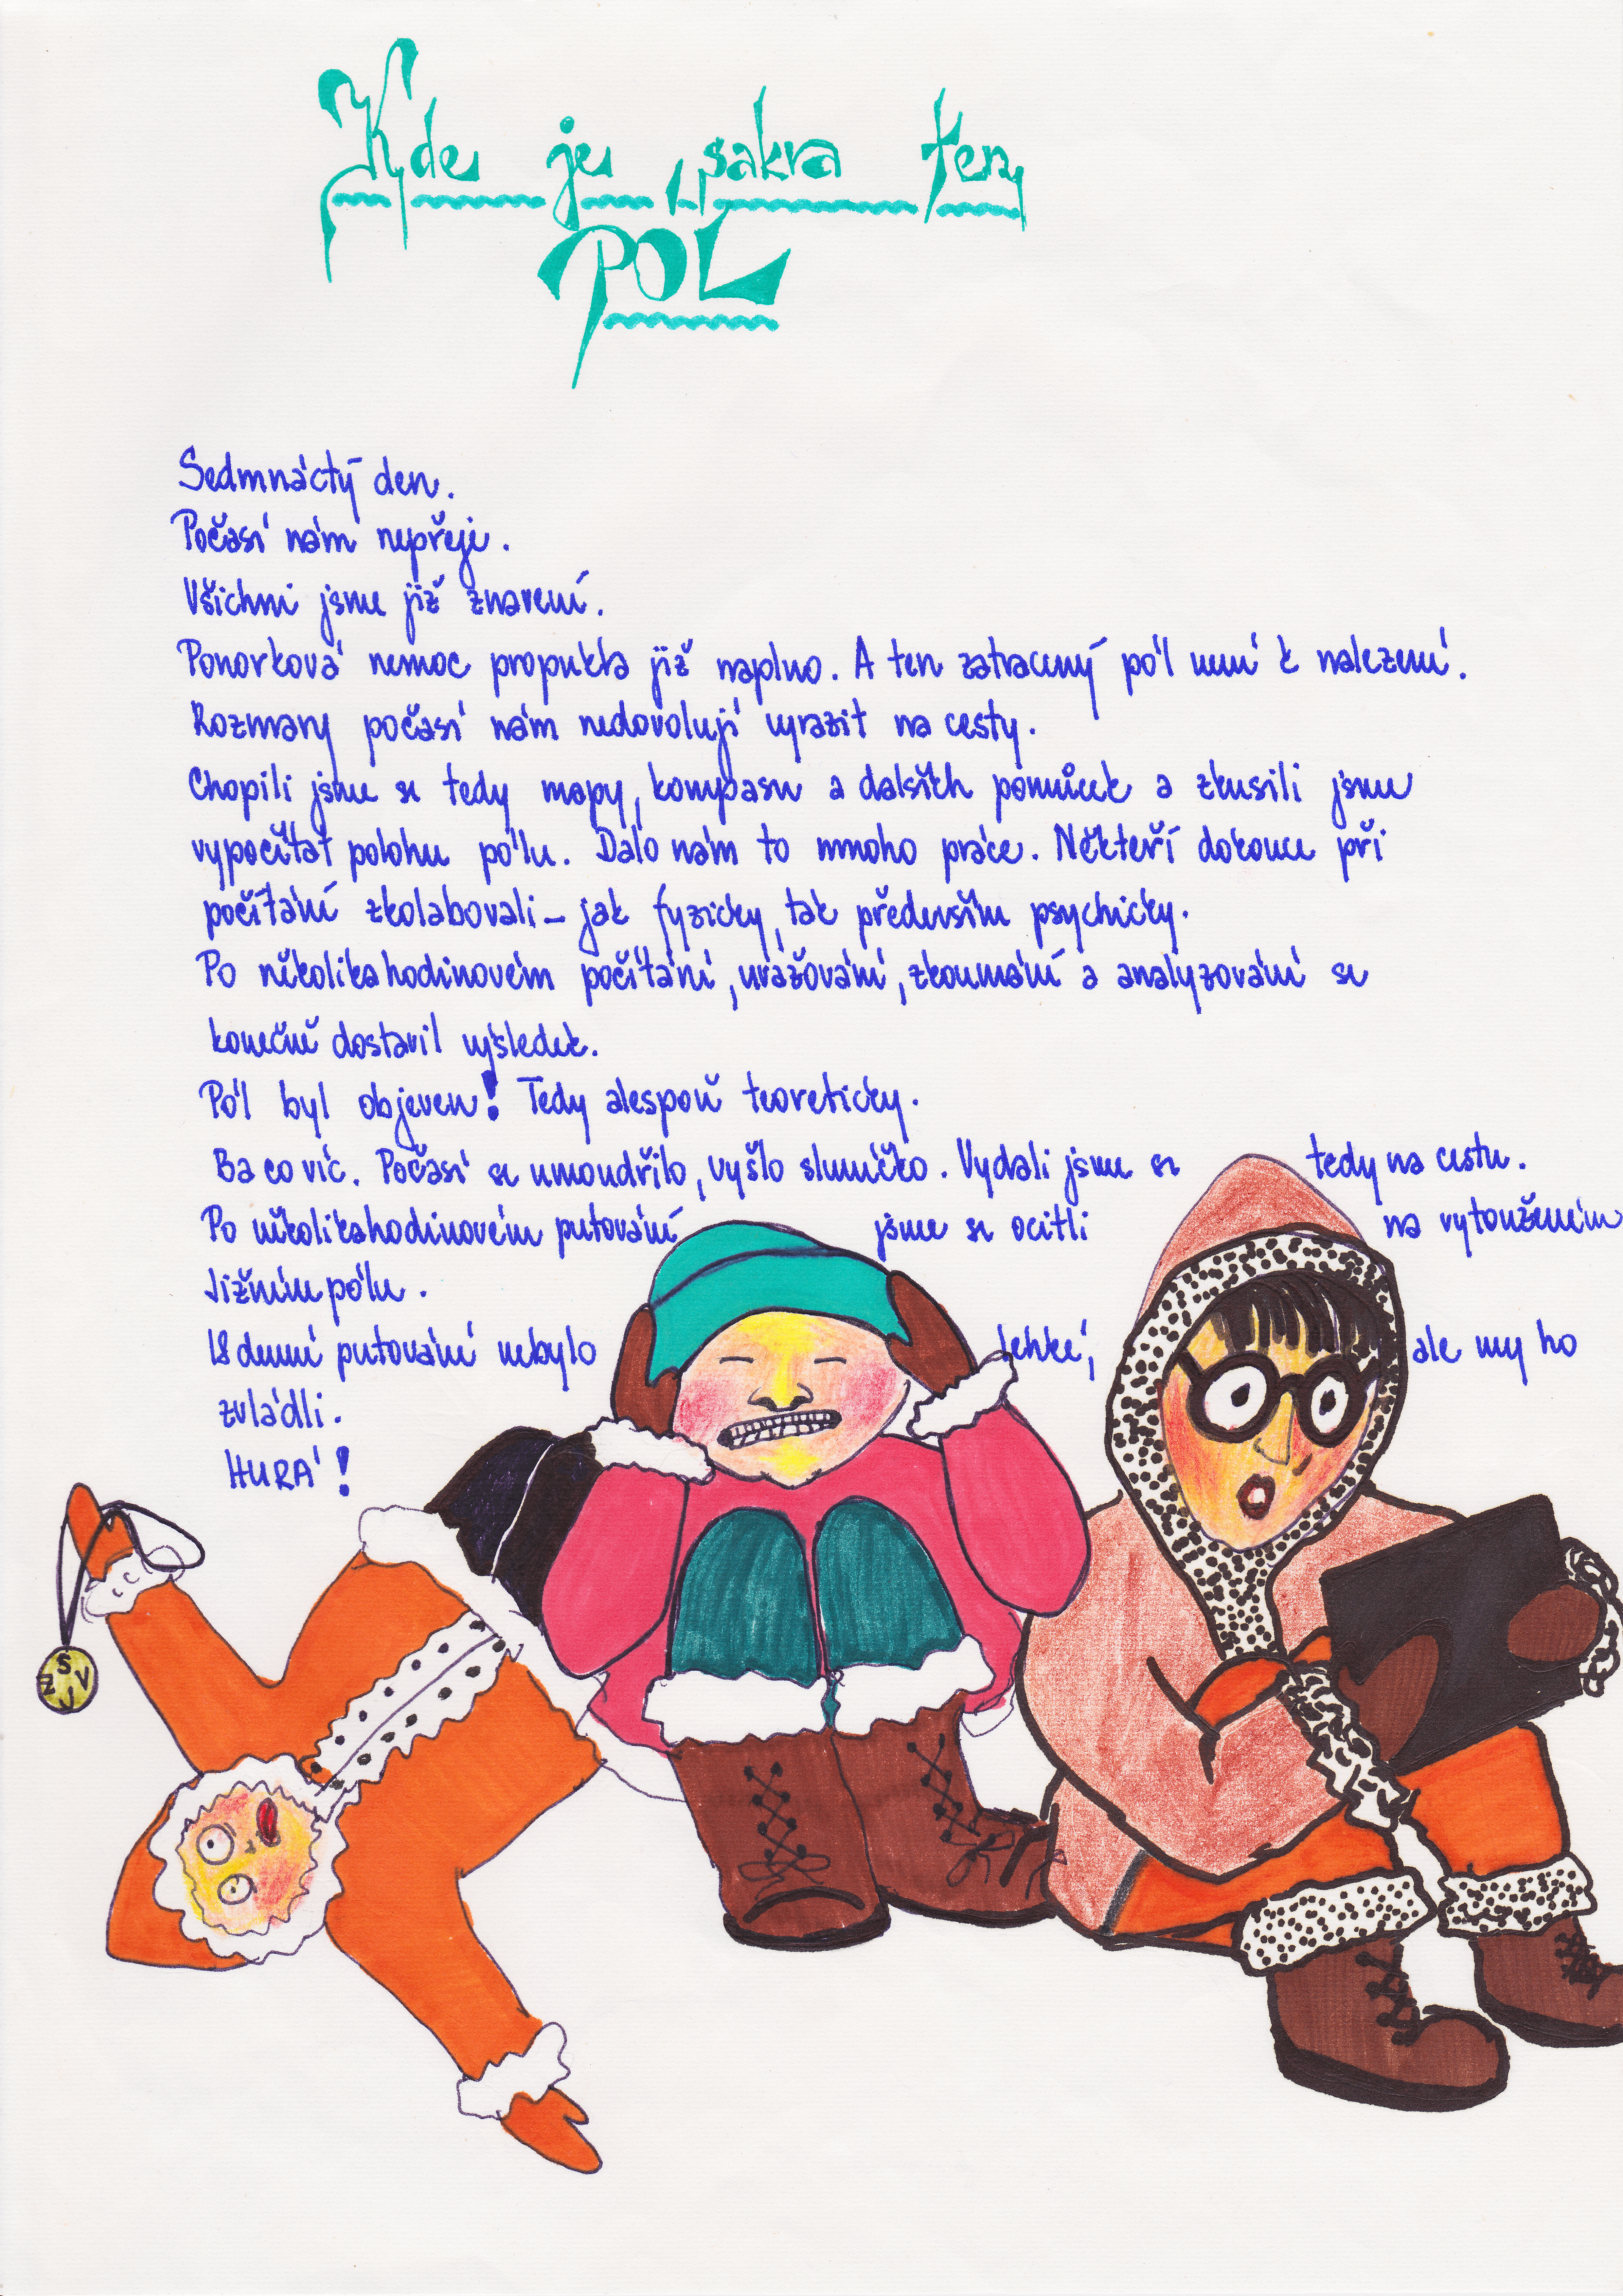 Kde je, sakra ten
PÓL
Sedmnáctý den.
Počasí nám nepřeje.
Všichni jsme již znaveni.
Ponorková nemoc propukla již naplno. A ten zatracený pól není k nalezení.
Rozmary počasí nám nedovolují vyrazit na cesty.
Chopili jsme se tedy mapy, kompasu a dalších pomůcek a zkusili jsme
vypočítat polohu pólu. Dalo nám to mnoho práce. Někteří dokonce při
počítání zkolabovali - jak fyzicky, tak především psychicky.
Po několikahodinovém počítání, uvažování, zkoumání a analyzování se
konečně dostavil výsledek.
Pól byl objeven! Tedy alespoň teoreticky.
Ba co víc. Počasí se umoudřilo, vyšlo sluníčko. Vydali jsme se tedy na cestu.
Po několikahodinovém putování jsme se ocitli na vytouženém
Jižním pólu.
18 denní putování nebylo lehké, ale my ho
zvládli.
HURÁ!
S
Z V
J